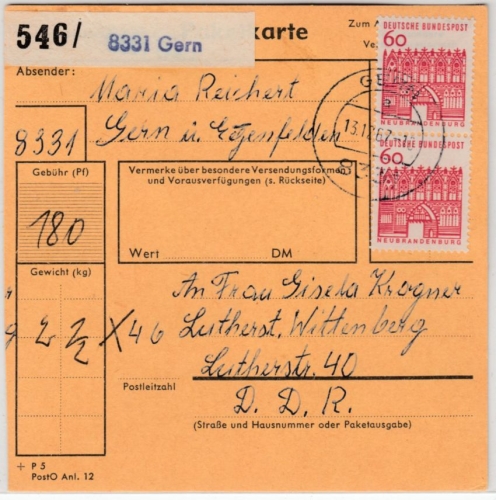 546/ 8331 Gern
karte
Zum A
Ve
60
DEUTSCHE BUNDESPOST
NEUBRANDENBURG
60
DEUTSCHE BUNDESPOST
NEUBRANDENBURG
GERN
13.12.67
8331
Absender:
Maria Reichert
8331 Gern ü. Eggenfelden
Gebühr (Pf)
180
Vermerke über besondere Versendungsformen
und Vorausverfügungen (s. Rückseite)
Wert DM
Gewicht (kg)
2 2/2 X 46
An Frau Gisela Krogner
Lutherst. Wittenberg
Lutherstr. 40
Postleitzahl
D. D. R.
(Straße und Hausnummer oder Paketausgabe)
+ P 5
PostO Anl. 12